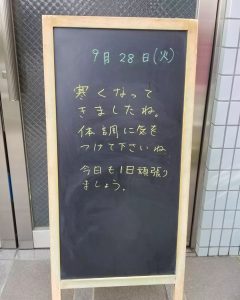 9月28日(火)
寒くなって
きましたね。
体調に気を
つけて下さいね
今日も1日頑張り
ましょう。